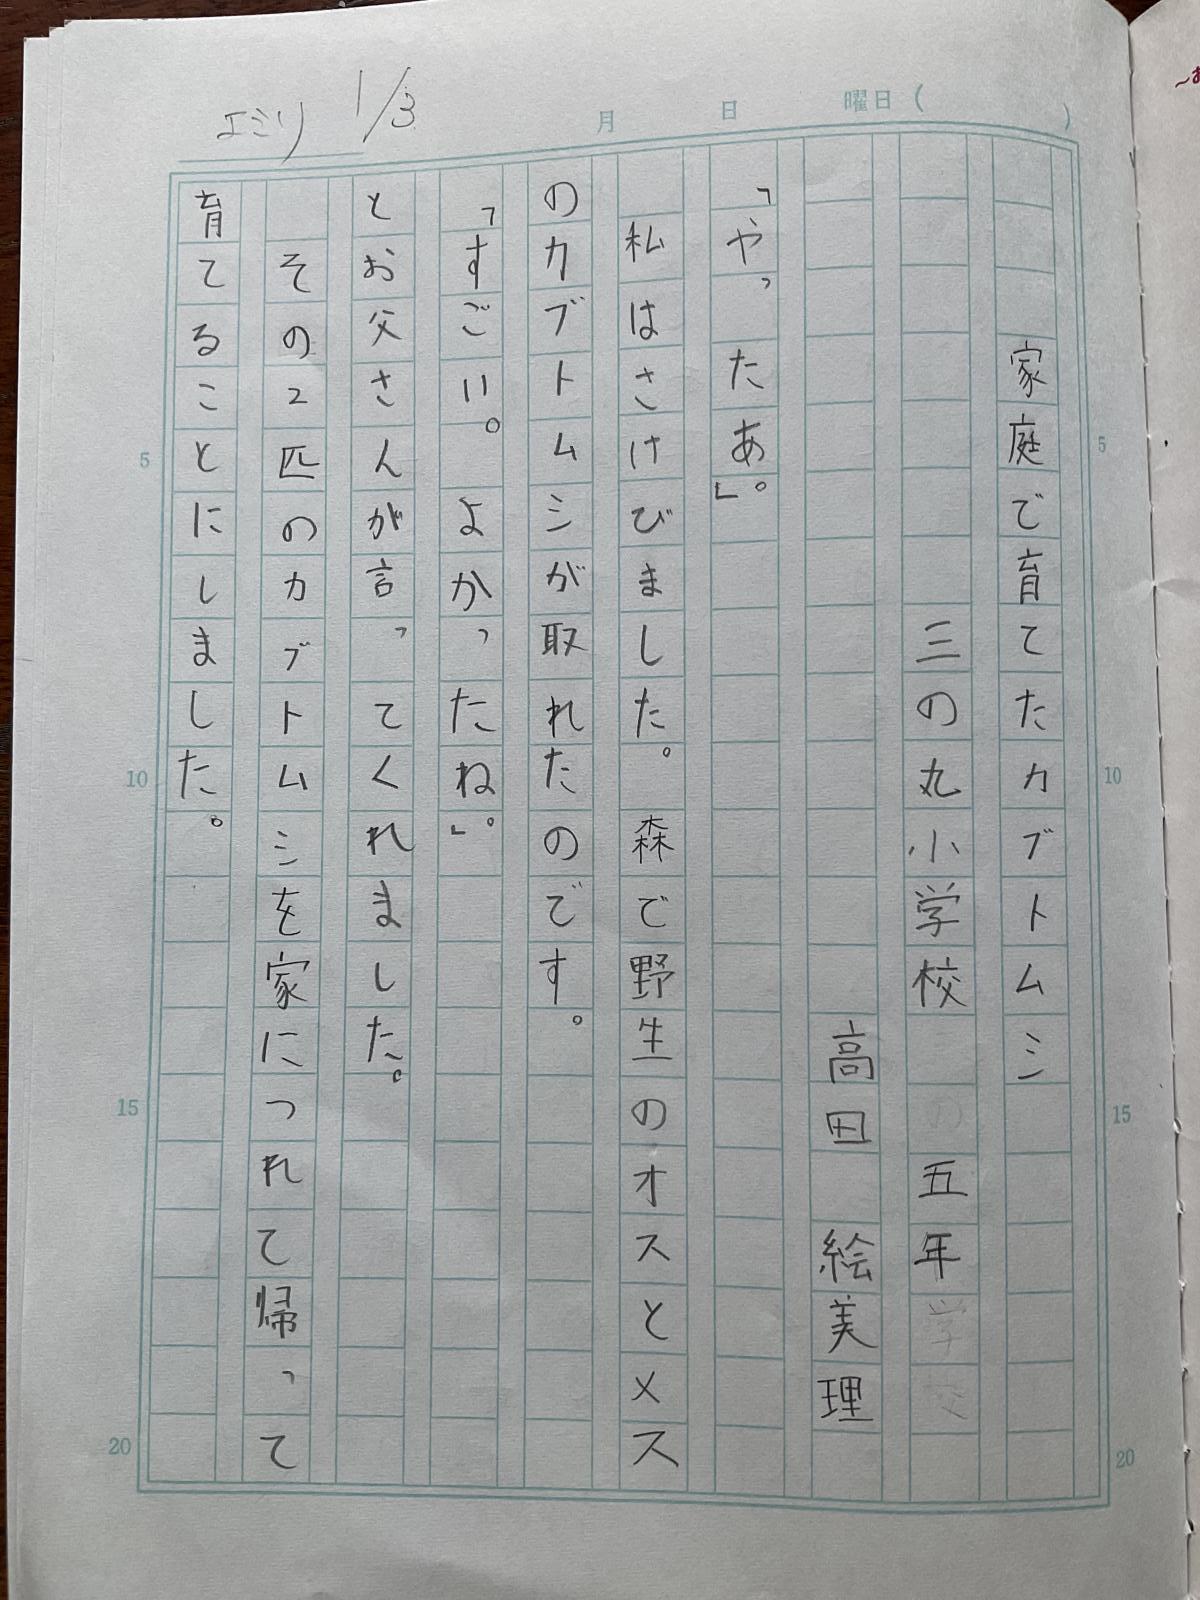 エミリ 1/3
月 日 曜日( )
家庭で育てたカブトムシ
三の丸小学校 五年
高田 絵美理
「やったあ。」
私はさけびました。森で野生のオスとメス
のカブトムシが取れたのです。
「すごい。よかったね。」
とお父さんが言ってくれました。
その2匹のカブトムシを家につれて帰って
育てることにしました。
5
10
15
20
5
10
15
20